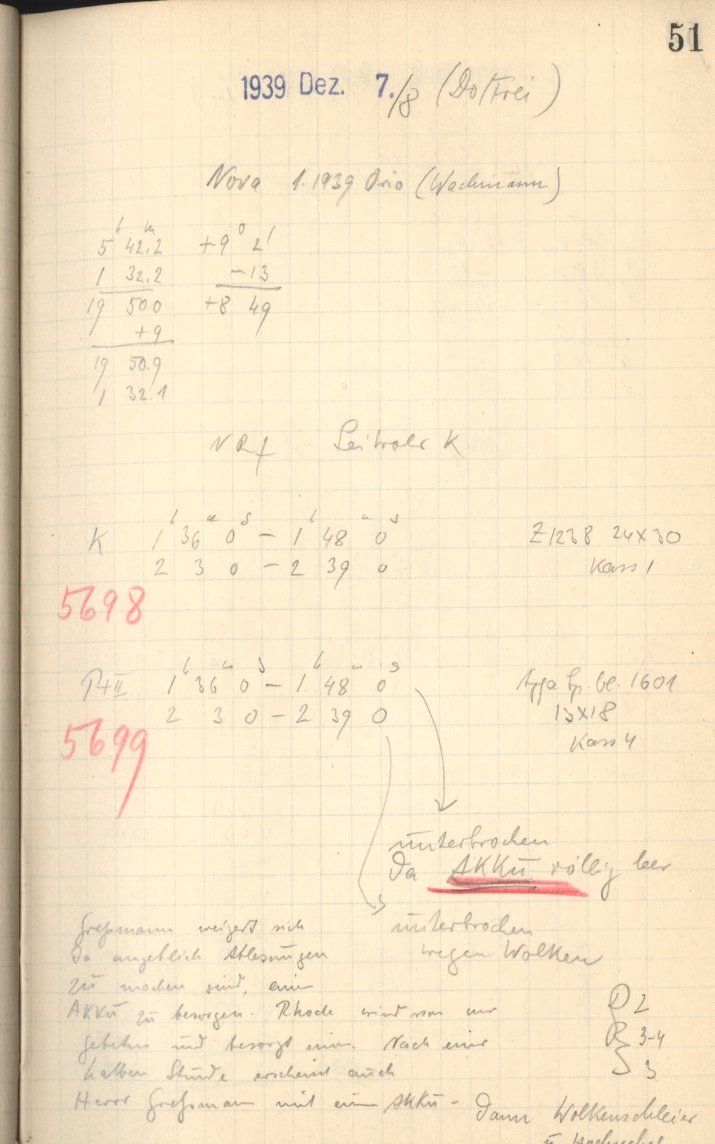 51
1939 Dez. 7./8 (Dottrei)
Nova 1.1939 Orio (Wachmann)
h m
5 42.2 +9° 2'
1 32.2 -13
19 50.0 +8 49
+9
19 50.9
1 32.1
NRf Leitrohr K
h m s h m s
K 1 36 0 - 1 48 0 Z1238 24x30
2 3 0 - 2 39 0 Kass 1
5698
h m s h m s
1 36 0 - 1 48 0 Agfa Sp. bl. 1601
2 3 0 - 2 39 0 13x18
5699 Kass 4
unterbrochen
Da AKKu völlig leer
unterbrochen
wegen Wolken
Greßmann weigert sich
da angeblich Ablesungen
zu machen sind, einen
AKKu zu besorgen. Rhode wird von mir
gebeten und besorgt einen. Nach einer
halben Stunde erscheint auch
Herr Greßmann mit einem AKKu -
D 2
R 3-4
S 3
Dann Wolkenschleier
u.